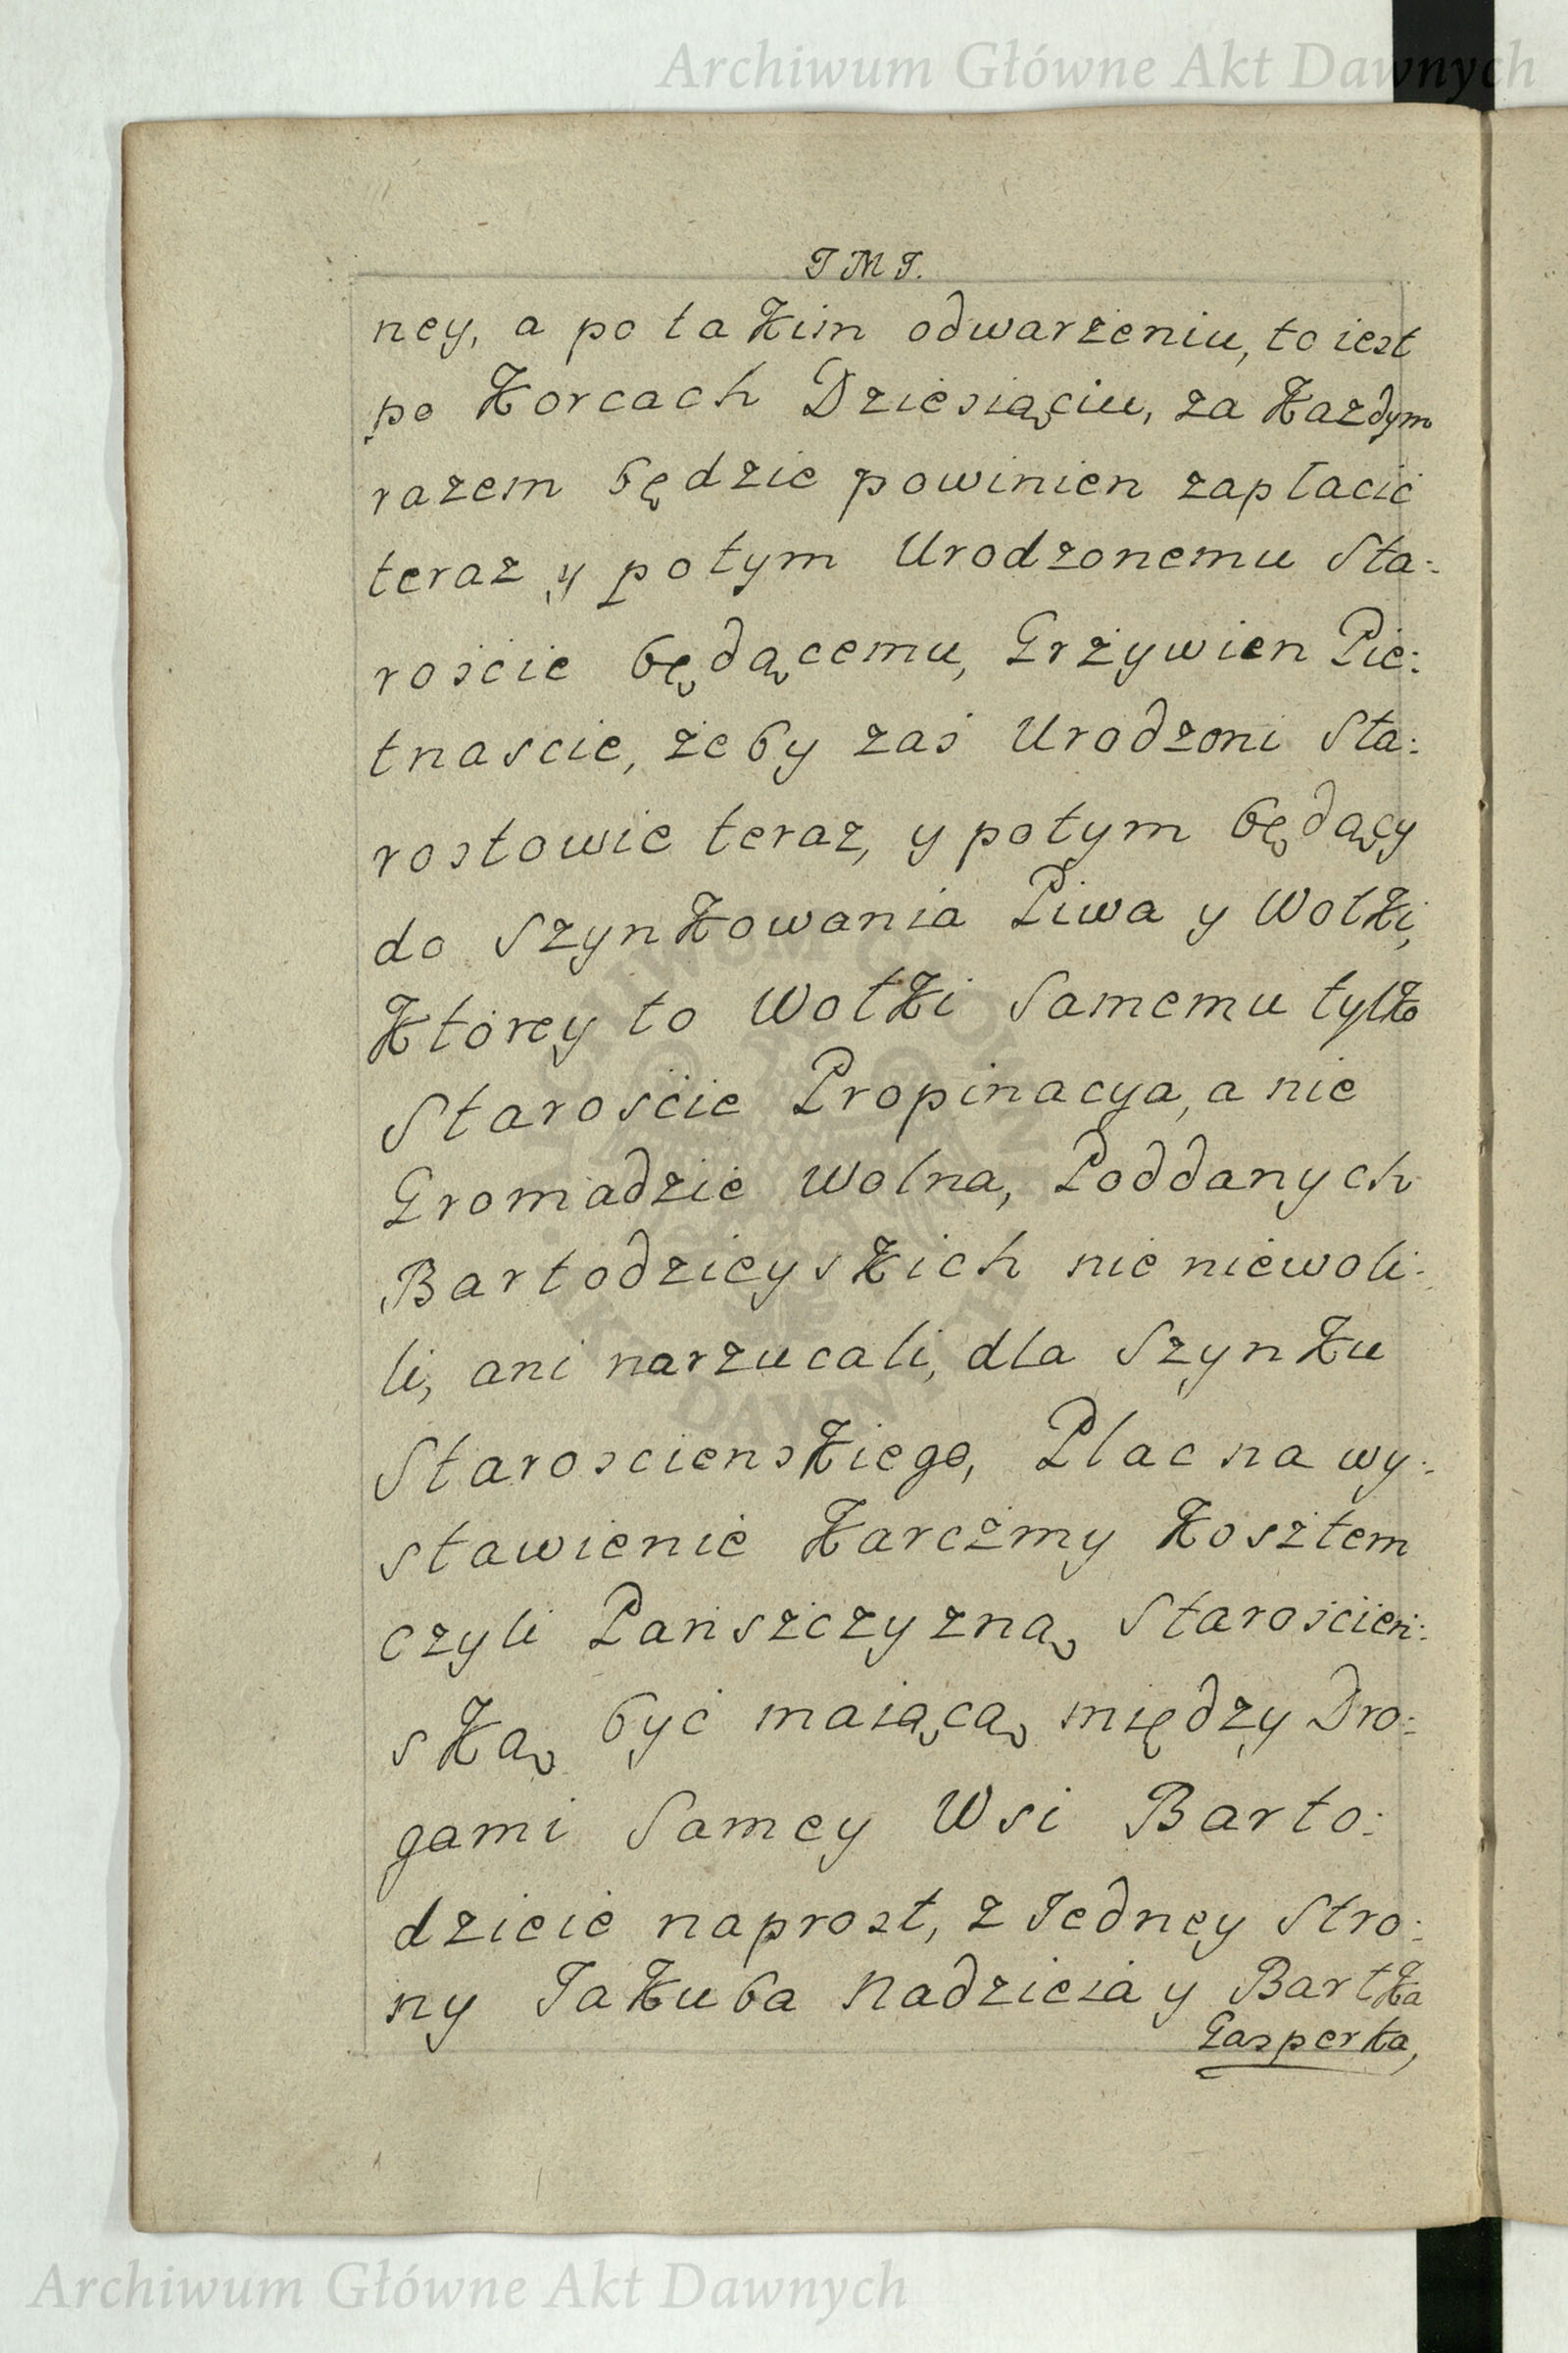 Archiwum Główne Akt Dawnych
J M J.
ney, a po takim odwarżeniu, to iest
po Korcach Dziesiąciu, za każdym
razem będzie powinien zapłacić
teraz y potym Urodzonemu Sta:
rościе będącemu, Grżywien Pie:
tnascie, żeby zaś Urodzoni Sta:
rostowie teraz, y potym będący
do Szynkowania Piwa y Wotki,
Ktorey to Wotki Samemu tylko
Starościе Propinacya, a nie
Gromadzie wolna, Poddanych
Bartodzieyskich nie niewoli:
li, ani narzucali, dla Szynku
Staroscienskiego, Plac na wy:
stawienie Karcżmy Kosztem
czyli Panszczyzną Staroścień:
ską być maiącą między Dro:
gami Samey Wsi Barto:
dzieie naprost, z Jedney Stro:
ny Jakuba Nadzieia y Bartka
Gasperka,
Archiwum Główne Akt Dawnych